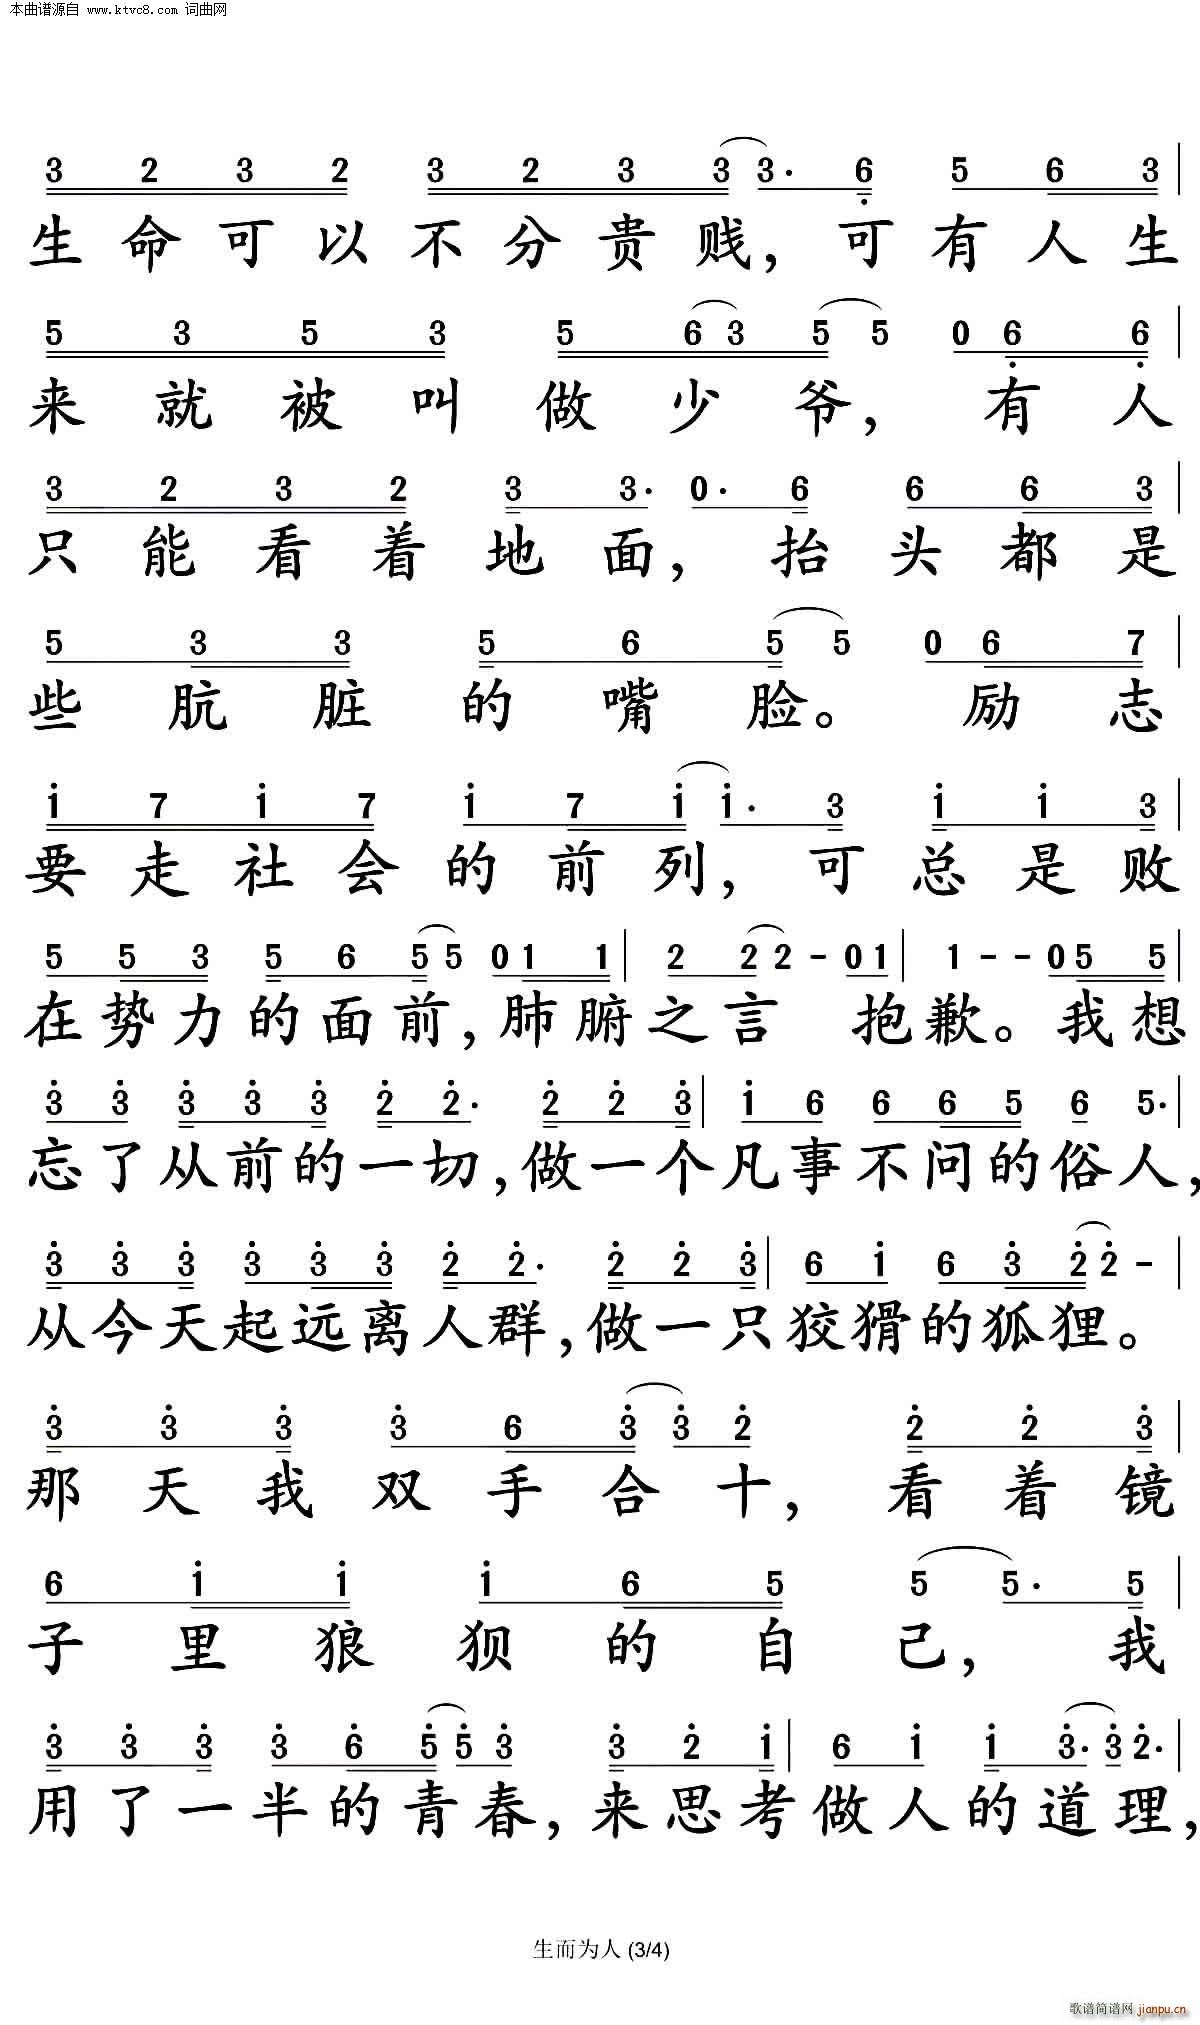 本曲谱源自 www.ktvc8.com 词曲网
3 2 3 2 3 2 3 3 3. 6 5 6 3 |
生命可以不分贵贱，可有人生
5 3 5 3 5 6 3 5 5 0 6 6 |
来就被叫做少爷，有人
3 2 3 2 3 3. 0. 6 6 6 3 |
只能看着地面，抬头都是
5 3 3 5 6 5 5 0 6 7 |
些肮脏的嘴脸。励志
i 7 i 7 i 7 i i. 3 i i 3 |
要走社会的前列，可总是败
5 5 3 5 6 5 5 0 1 1 | 2 2 2 - 0 1 | 1 - - 0 5 5 |
在势力的面前，肺腑之言 抱歉。我想
3 3 3 3 3 2 2. 2 2 3 | i 6 6 6 5 6 5. |
忘了从前的一切，做一个凡事不问的俗人，
3 3 3 3 3 3 2 2. 2 2 3 | 6 i 6 3 2 2 - |
从今天起远离人群，做一只狡猾的狐狸。
3 3 3 3 6 3 3 2 2 2 3 |
那天我双手合十，看着镜
6 i i i 6 5 5 5. 5 |
子里狼狈的自己，我
3 3 3 3 6 5 5 3 3 2 i | 6 i i 3. 3 2. |
用了一半的青春，来思考做人的道理，
生而为人 (3/4)
歌谱简谱网 jianpu.cn